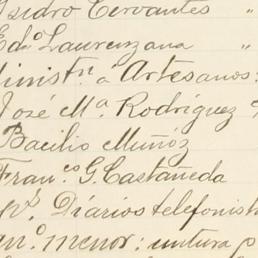 Isidro Cervantes "
Ed.o Laurenzana "
Ministn a Artesanos:
José Ma. Rodríguez
Bacilio Muñóz
Fran.co G. Castañeda
Diarios telefonist
menor: untura p